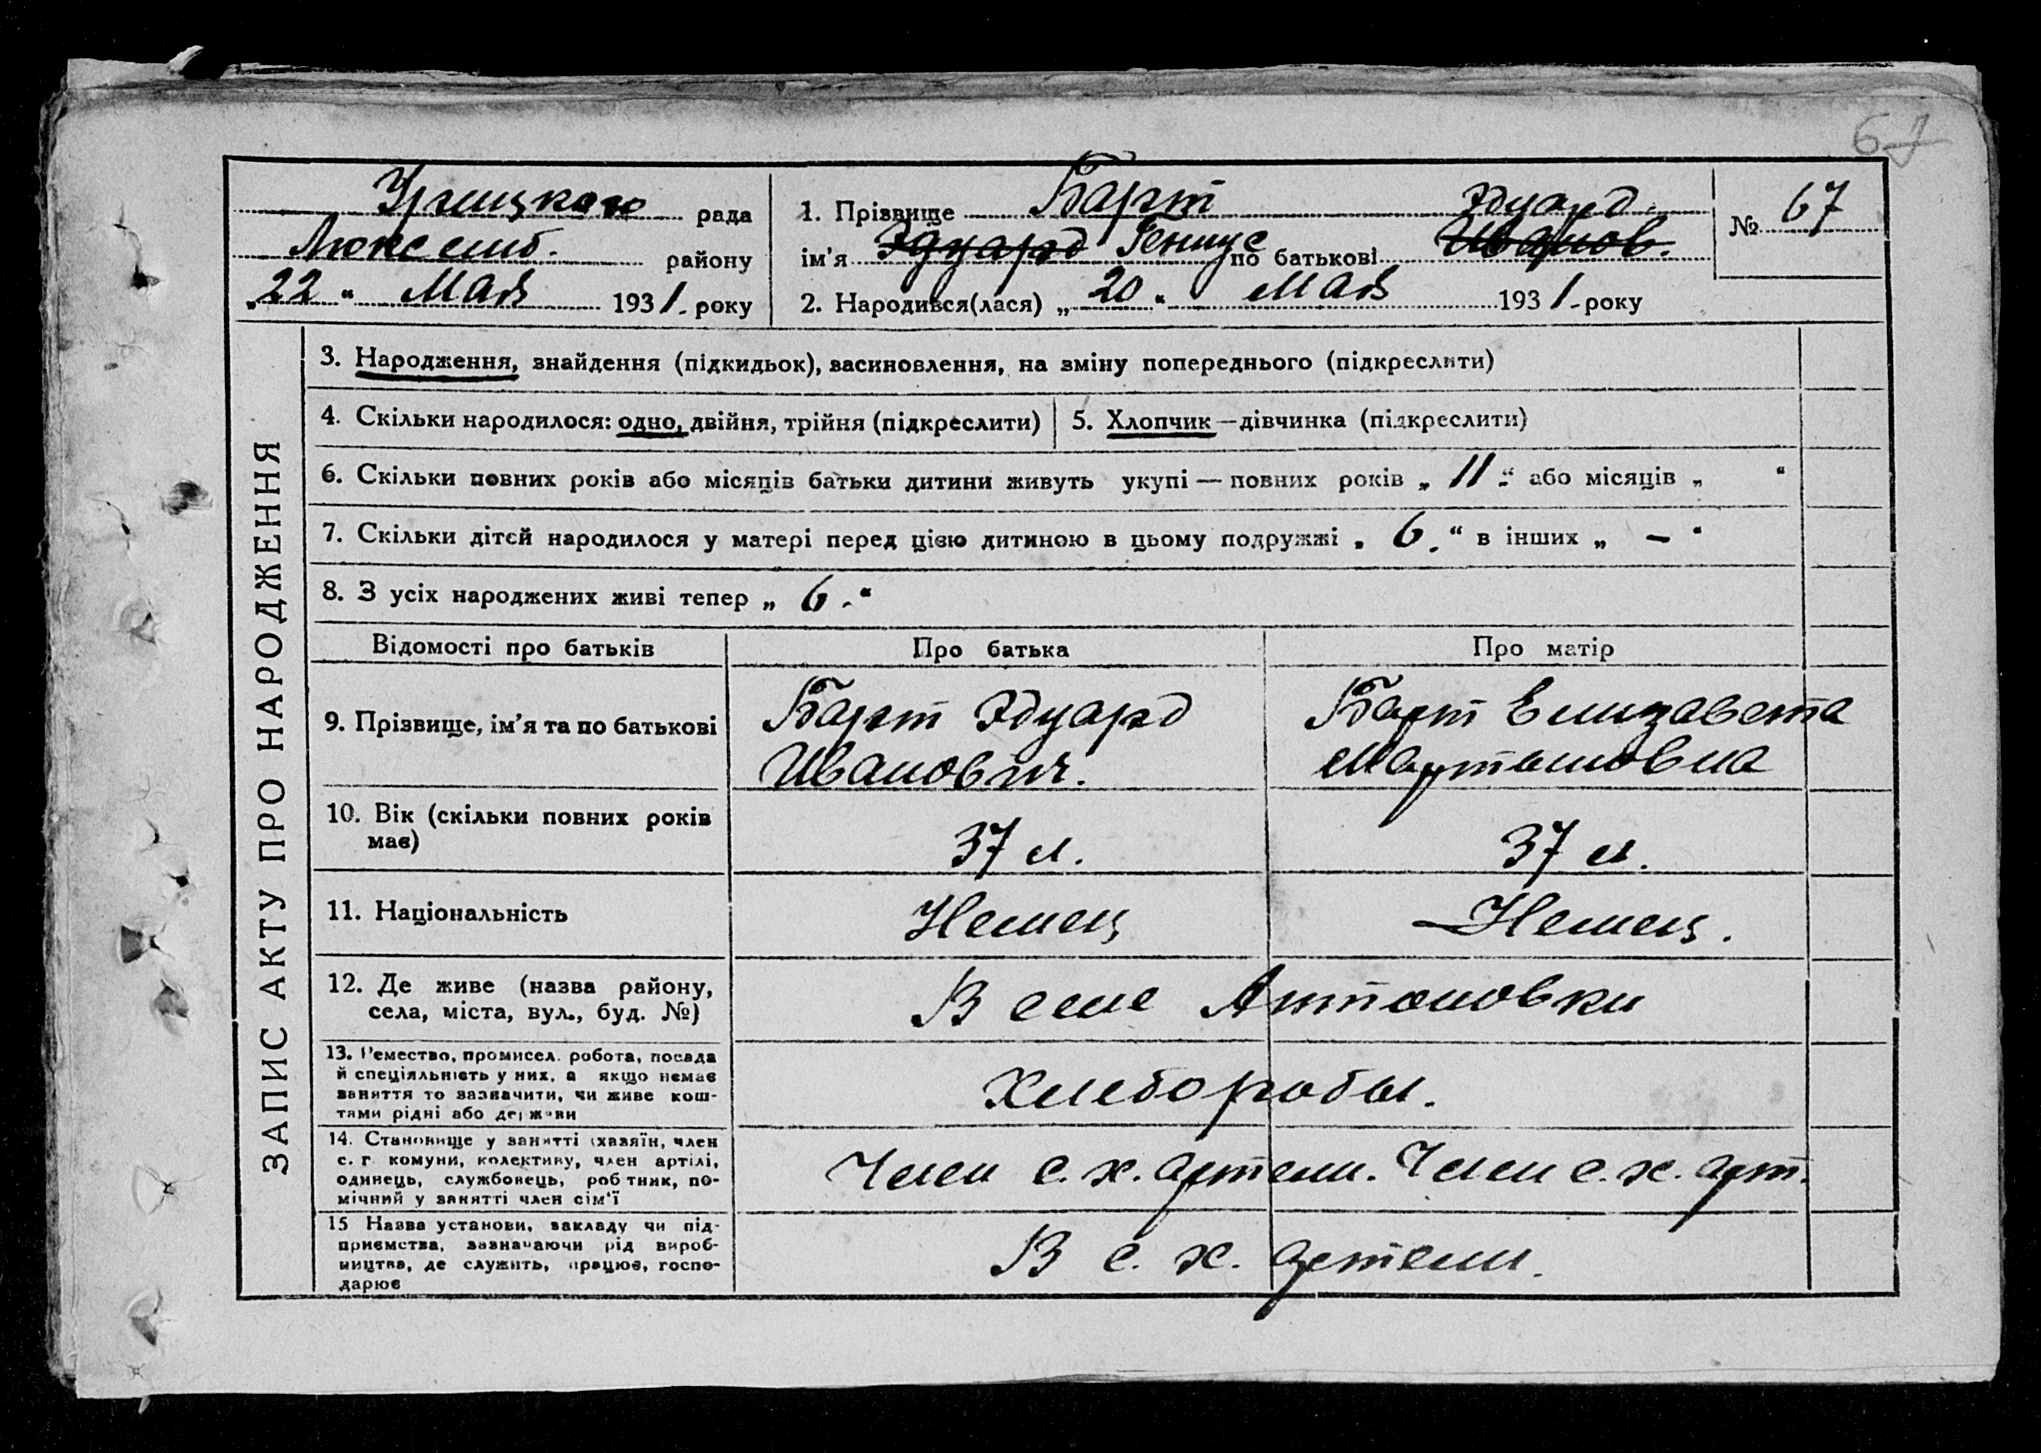 67
Урицкого рада
Люксемб. району
„22“ Мая 1931. року
1. Прізвище Барт Эдуард.
ім'я Эдуард Гениус по батькові Иванов.
2. Народився(лася) „20“ Мая 1931.року
№ 67
ЗАПИС АКТУ ПРО НАРОДЖЕННЯ
3. Народження, знайдення (підкидьок), васиновлення, на зміну попереднього (підкреслити)
4. Скільки народилося: одно, двійня, трійня (підкреслити)
5. Хлопчик—дівчинка (підкреслити)
6. Скільки повних років або місяців батьки дитини живуть укупі — повних років „11.“ або місяців „ “
7. Скільки дітей народилося у матері перед цією дитиною в цьому подружжі „6.“ в інших „—“
8. З усіх народжених живі тепер „6.“
Відомості про батьків
Про батька
Про матір
9. Прізвище, ім'я та по батькові
Барт Эдуард
Иванович.
Барт Елизавета
Мартыновна
10. Вік (скільки повних років
має)
37 л.
37 л.
11. Національність
Немец
Немец.
12. Де живе (назва району,
села, міста, вул., буд. №)
В селе Антоновки
13. Ремество, промисел. робота, посада
й спеціяльність у них, а якщо немає
заняття то зазначити, чи живе кош-
тами рідні або держави
Хлеборобы.
14. Становище у занятті (хазяїн, член
с. г. комуни, колективу, член артілі,
одинець, службовець, робтник, по-
мічний у занятті член сім'ї
Член с. х. артели. Член с. х. арт.
15 Назва установи, закладу чи під-
приємства, зазначаючи рід вироб-
ництва, де служить, працює, госпо-
дарює
В с. х. артели.